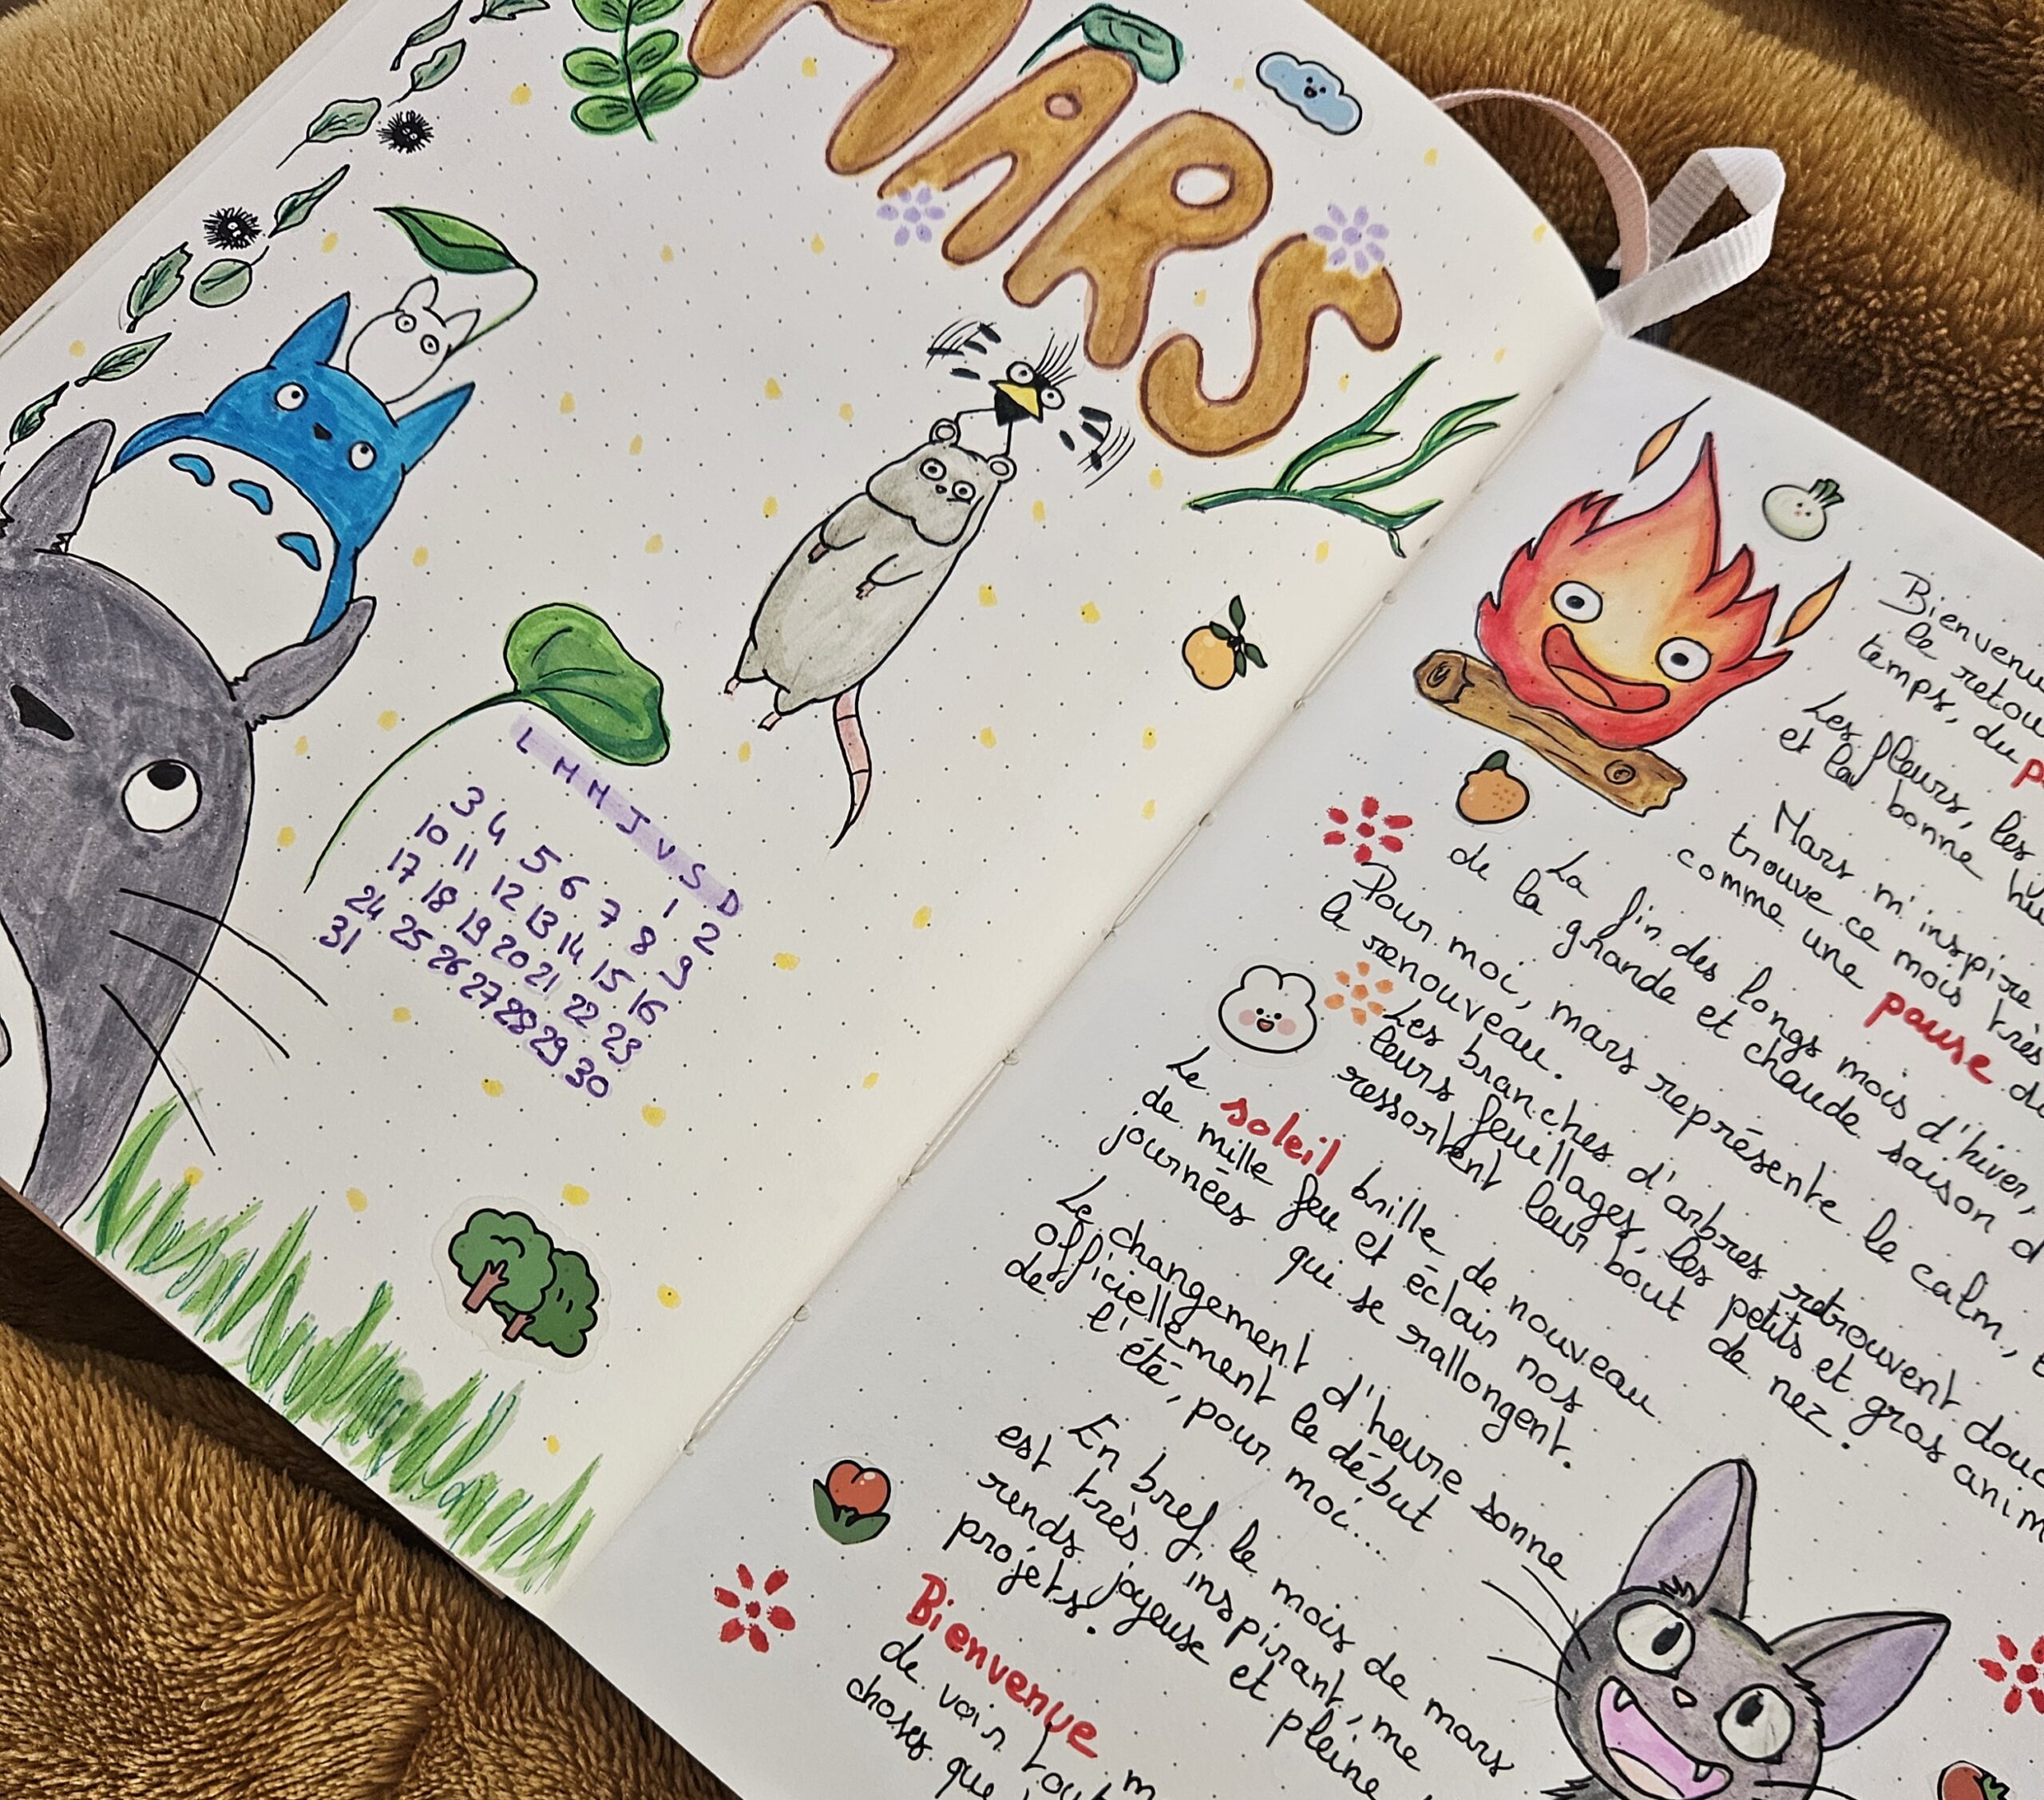 MARS
L M M J V S D
1 2
3 4 5 6 7 8 9
10 11 12 13 14 15 16
17 18 19 20 21 22 23
24 25 26 27 28 29 30
31
le
temps, du
Les fleurs, les
et la bonne
Mars m'inspire
trouve ce mois très
comme une pause
La fin des longs mois d'hiver,
de la grande et chaude saison
Pour moi, mars représente le calm,
le renouveau.
Les branches d'arbres retrouvent
leurs feuillages, les petits et gros
ressortent leur bout de nez.
Le soleil brille de nouveau
de mille feu et éclair nos
journées qui se rallongent.
Le changement d'heure sonne
officiellement le début
de l'été, pour moi...
En bref, le mois de mars
est très inspirant, me
rends joyeuse et pleine
projets.
Bienvenue
de voir
choses que